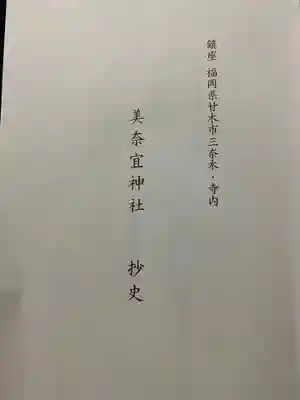 鎮座 福岡県甘木市三奈木・寺内
美奈宜神社 抄史